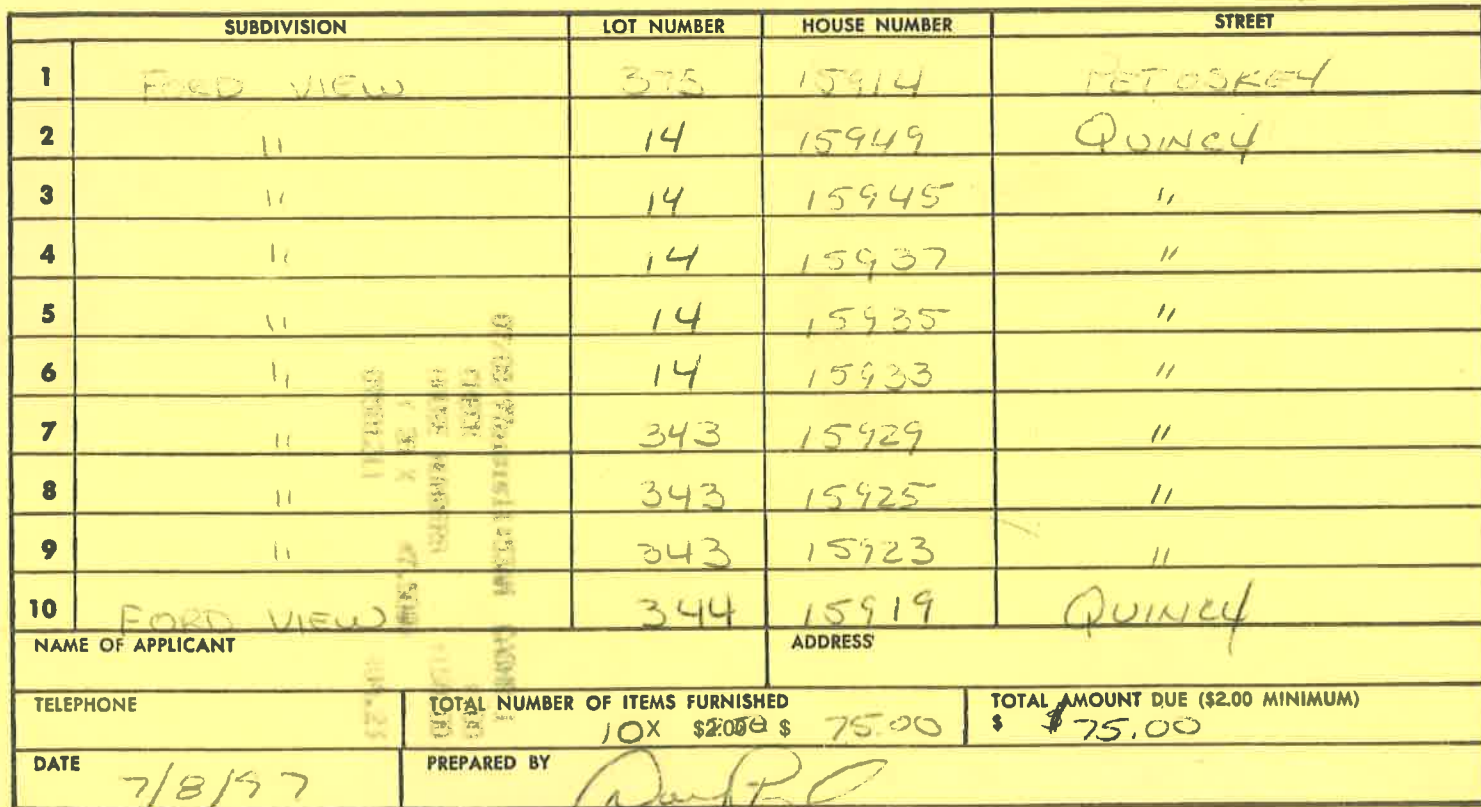 SUBDIVISION LOT NUMBER HOUSE NUMBER STREET
1 FORD VIEW 375 15914 PETOSKEY
2 " 14 15949 QUINCY
3 " 14 15945 "
4 " 14 15937 "
5 " 14 15935 "
6 " 14 15933 "
7 " 343 15929 "
8 " 343 15925 "
9 " 343 15923 "
10 FORD VIEW 344 15919 QUINCY
NAME OF APPLICANT ADDRESS
TELEPHONE TOTAL NUMBER OF ITEMS FURNISHED TOTAL AMOUNT DUE ($2.00 MINIMUM)
10 X $ 75.00 $ $75.00
DATE PREPARED BY
7/8/97